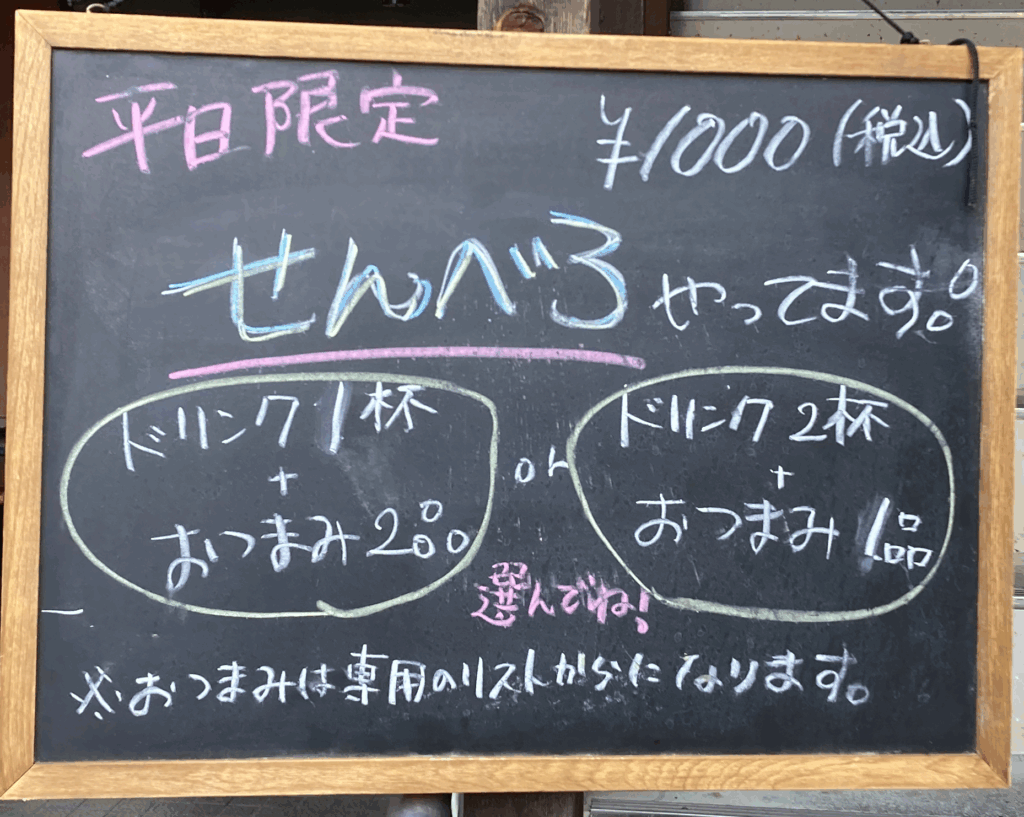 平日限定
¥1000(税込)
せんべろ やってます。
ドリンク1杯
+
おつまみ2品
or
ドリンク2杯
+
おつまみ1品
選んでね!
※おつまみは専用のリストからになります。